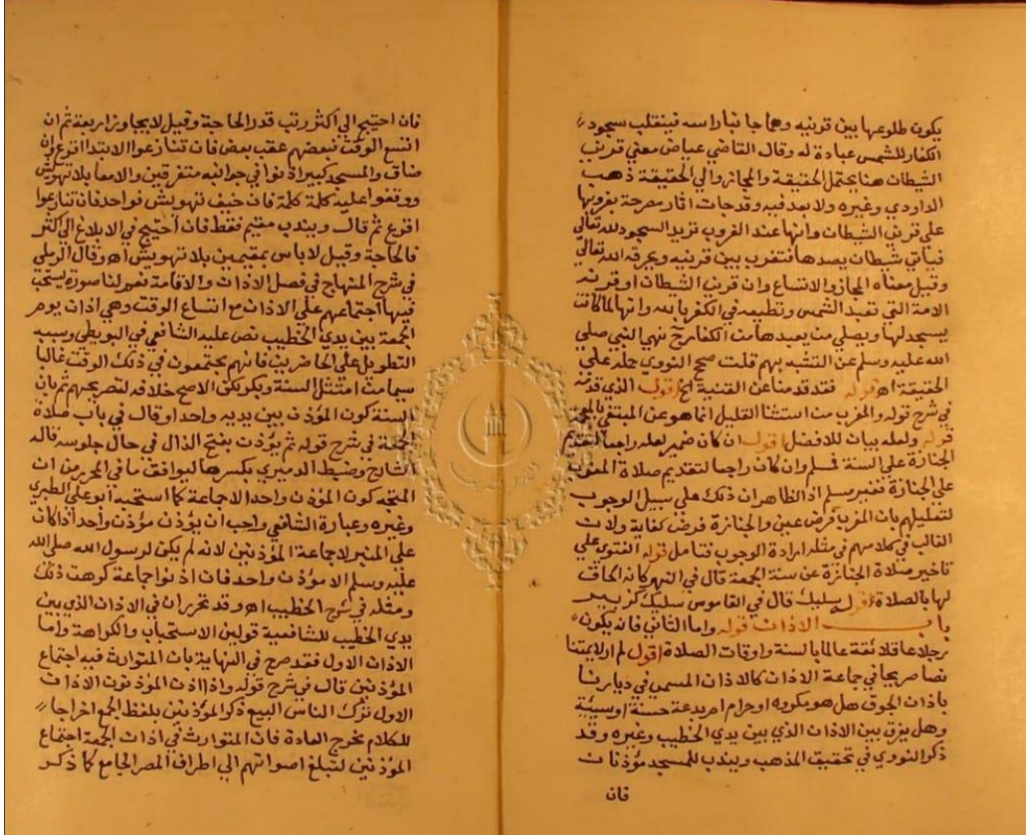 يكون طلوعها بين قرنيه وهما جانبا راسه فينقلب سجود
الكفار للشمس عبادة له وقال القاضي عياض معني قرني
الشيطان هنا يحتمل الحقيقة والمجاز والي الحقيقة ذهب
الداودي وغيره ولا بعد فيه وقد جات اثار مصرحة بغروبها
علي قرني الشيطان وانها عند الغروب تريد السجود لله تعالي
فياتي شيطان يصدها فتغرب بين قرنيه ويحرقه الله تعالي
وقيل معناه المجاز والاتساع وان قرني الشيطان او قرنه
الامة التي تعبد الشمس وتطيعه في الكفر بالله وانها لما كانت
يسجد لها ويصلي من يعبدها من الكفار ح نهي النبي صلي
الله عليه وسلم عن التشبه بهم قلت صحح النووي حمله علي
الحقيقة اه قوله فقد قدمنا عن القنية الخ اقول الذي قدمه
في شرح قوله والمغرب من استثنا القليل انما هو عن المبتغي بالمعجمة
قوله ولعله بيان للافضل اقول ان كان ضمير لعله راجعا لتقديم
الجنازة علي السنة فمسلم وان كان راجعا لتقديم صلاة المغرب
علي الجنازة فغير مسلم اذ الظاهر ان ذلك علي سبيل الوجوب
لتعليلهم بان المغرب فرض عين والجنازة فرض كفاية ولان
الغالب في كلامهم في مثله ارادة الوجوب فتامل قوله الفتوي علي
تاخير صلاة الجنازة عن سنة الجمعة قال في النهر كانه الحاق
لها بالصلاة قوله سليك قال في القاموس سليك كزبير
باب الاذان قوله واما الثاني فانه يكون
رجلا عاقلا ثقة عالما بالسنة واوقات الصلاة اقول لم ار لايمتنا
نصا صريحا في جماعة الاذان كالاذان المسمي في ديارنا
باذان الجوق هل هو مكروه او حرام ام بدعة حسنة او سيئة
وهل يفرق بين الاذان الذي بين يدي الخطيب وغيره وقد
ذكر النووي في تحقيق المذهب ويندب للمسجد مؤذنان
فان
فان احتيج الي اكثر رتب قدر الحاجة وقيل لا يجاوز اربعة ثم ان
اتسع الوقت فبعضهم عقب بعض فان تنازعوا الابتدا اقرع وان
ضاق والمسجد كبير اذنوا في جوانبه متفرقين والا معا بلا تهويش
ووقفوا عليه كلمة كلمة فان خيف تهويش فواحد فان تنازعوا
اقرع ثم قال ويندب مقيم فقط فان احتيج في الابلاغ الي اكثر
فالحاجة وقيل لا باس بمقيمين بلا تهويش اه وقال الرملي
في شرح المنهاج في فصل الاذان والاقامة نعم لنا صورة يستحب
فيها اجتماعهم علي الاذان مع اتساع الوقت وهي اذان يوم
الجمعة بين يدي الخطيب نص عليه الشافعي في البويطي وسببه
التطويل علي الحاضرين فانهم يجتمعون في ذلك الوقت غالبا
سيما من امتثل السنة وبكر لكن الاصح خلافه لتصريحهم ثم بان
السنة كون المؤذن بين يديه واحدا وقال في باب صلاة
الجمعة في شرح قوله ثم يؤذن بفتح الذال في حال جلوسه قاله
الشارح وضبط الدميري بكسرها ليوافق ما في المحرر من ان
المتجه كون المؤذن واحدا لا جماعة كما استحبه ابو علي الطبري
وغيره وعبارة الشافعي واحب ان يؤذن مؤذن واحد اذا كان
علي المنبر لا جماعة المؤذنين لانه لم يكن لرسول الله صلي الله
عليه وسلم الا مؤذن واحد فان اذنوا جماعة كرهت ذلك
ومثله في شرح الخطيب اه وقد تحرر ان في الاذان الذي بين
يدي الخطيب للشافعية قولين الاستحباب والكراهة واما
الاذان الاول فقد صرح في النهاية بان المتوارث فيه اجتماع
المؤذنين قال في شرح قوله واذا اذن المؤذنون الاذان
الاول ترك الناس البيع ذكر المؤذنين بلفظ الجمع اخراجا
للكلام مخرج العادة فان المتوارث في اذان الجمعة اجتماع
المؤذنين لتبلغ اصواتهم الي اطراف المصر الجامع كما ذكر